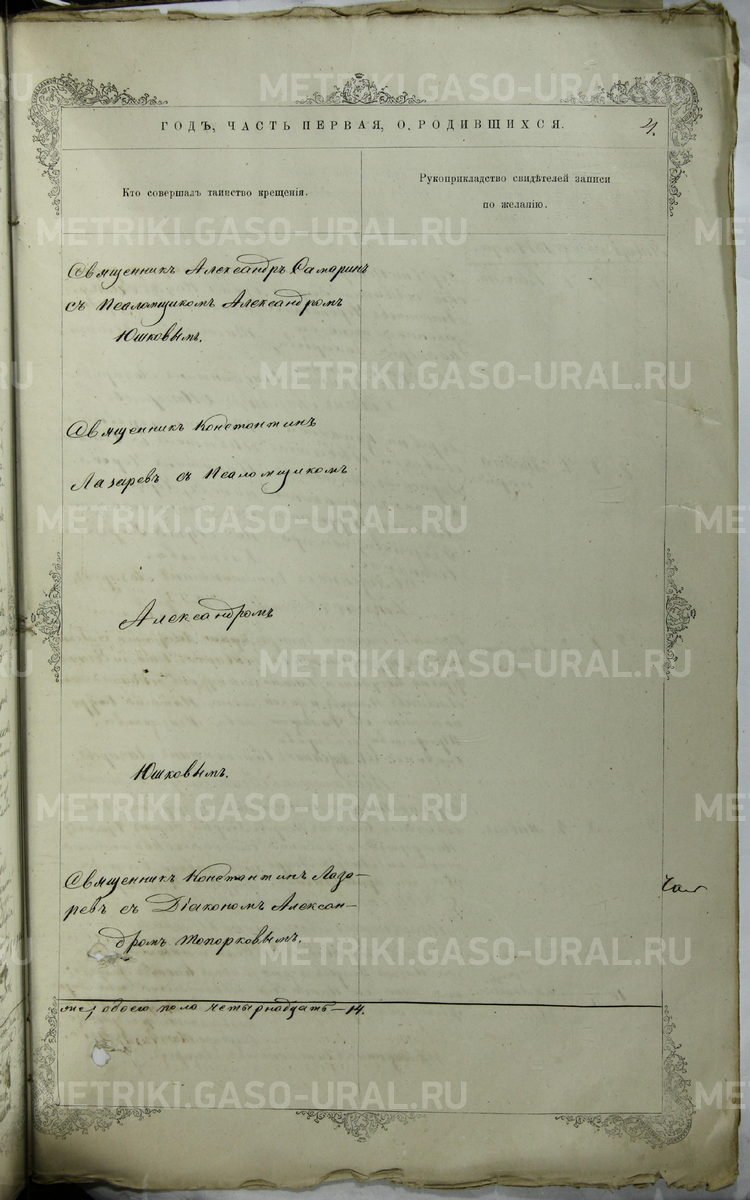 ГОДЪ, ЧАСТЬ ПЕРВАЯ, О РОДИВШИХСЯ.
21.
Кто совершалъ таинство крещенія.
Рукоприкладство свидѣтелей записи
по желанію.
Священникъ Александръ Самаринъ
съ Псаломщикомъ Александромъ
Юшковымъ.
Священникъ Константинъ
Лазаревъ съ Псаломщикомъ
Александромъ
Юшковымъ.
Священникъ Константинъ Лаза-
ревъ съ Діакономъ Алексан-
дромъ Топорковымъ.
обоего пола четырнадцать — 14.
METRIKI.GASO-URAL.RU